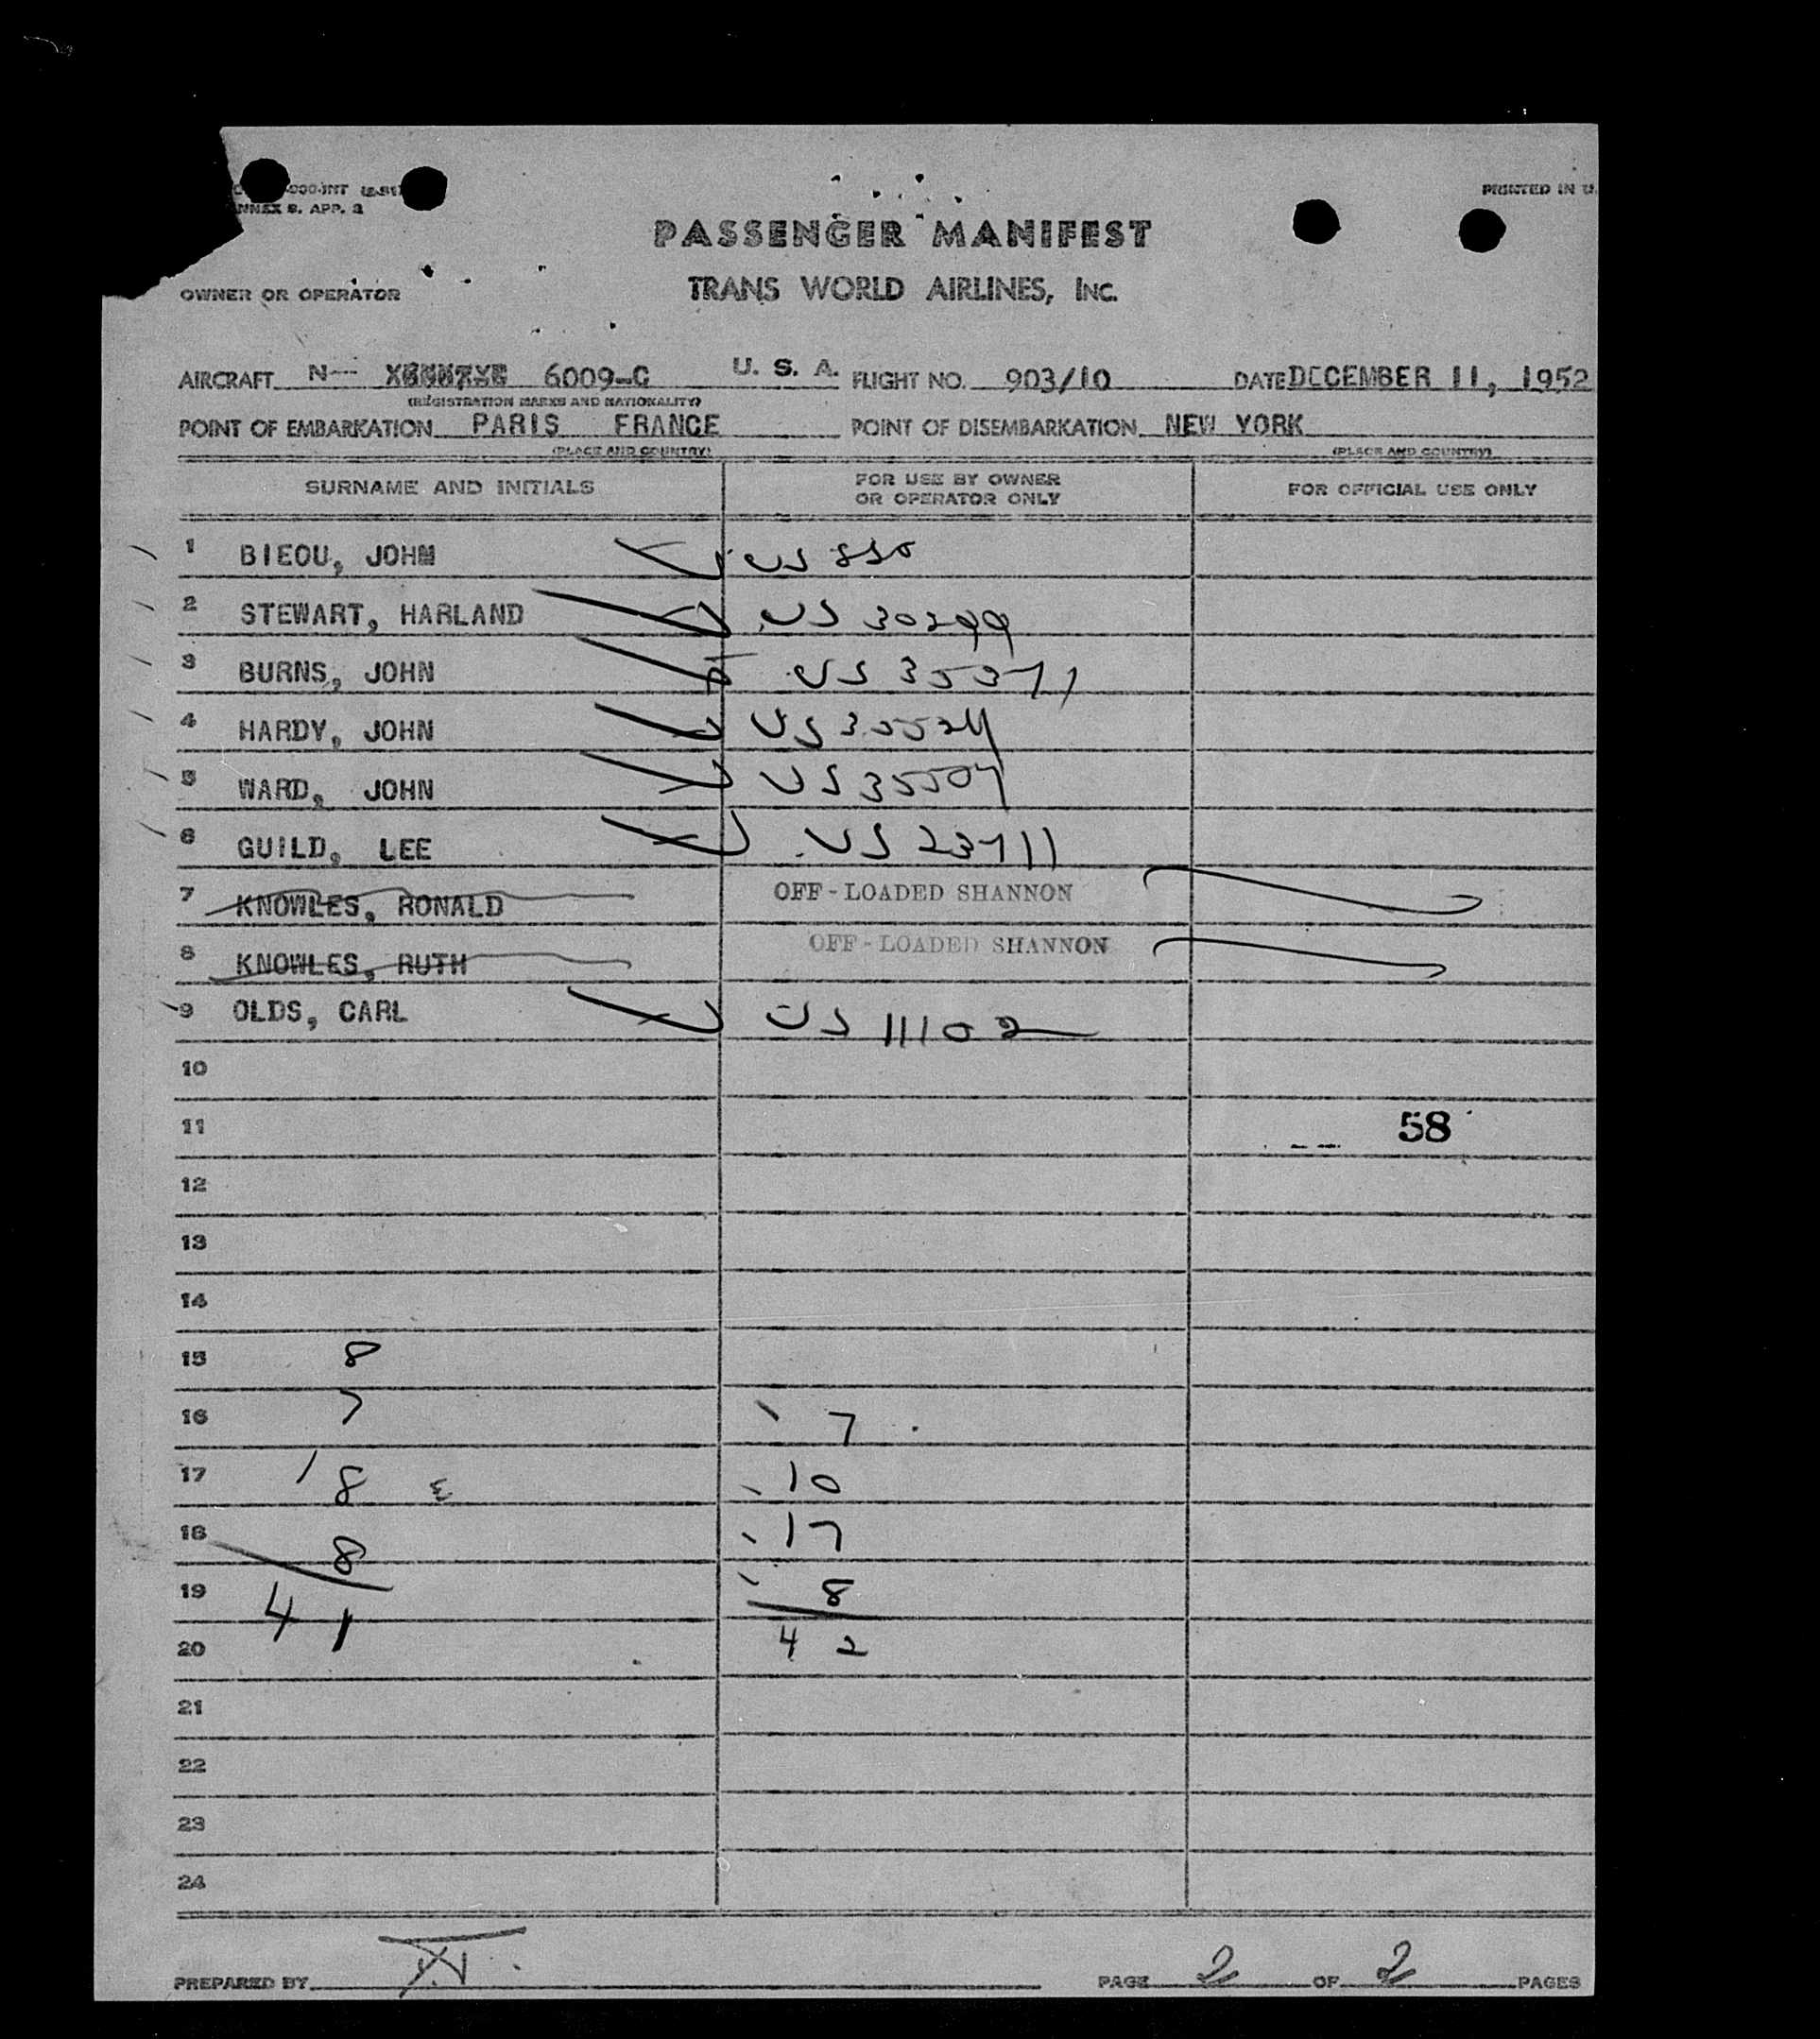 -000-INT
ANNEX 9. APP. 3
PRINTED IN U.
PASSENGER MANIFEST
OWNER OR OPERATOR TRANS WORLD AIRLINES, INC.
AIRCRAFT N-- 6009-C U. S. A. FLIGHT NO. 903/10 DATE DECEMBER 11, 1952
(REGISTRATION MARKS AND NATIONALITY)
POINT OF EMBARKATION PARIS FRANCE POINT OF DISEMBARKATION NEW YORK
(PLACE AND COUNTRY) (PLACE AND COUNTRY)
SURNAME AND INITIALS FOR USE BY OWNER OR OPERATOR ONLY FOR OFFICIAL USE ONLY
1 BIEOU, JOHN US 850
2 STEWART, HARLAND US 30299
3 BURNS, JOHN US 35371
4 HARDY, JOHN US
5 WARD, JOHN US 35507
6 GUILD, LEE US 23711
7 KNOWLES, RONALD OFF-LOADED SHANNON
8 KNOWLES, RUTH OFF-LOADED SHANNON
9 OLDS, CARL US 11102
10
11 58
12
13
14
15 8
16 7 7
17 18 10
18 8 17
19 41 8
20 42
21
22
23
24
PREPARED BY PAGE 2 OF 2 PAGES